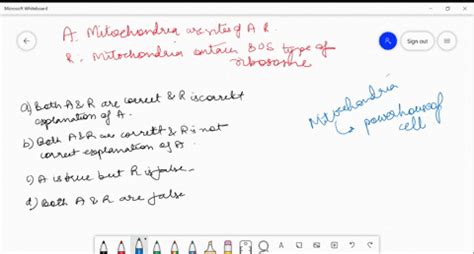 Microsoft Whiteboard
A. Mitochondria are sites of A R.
R. Mitochondria contain 80S type of
ribosome
Sign out
a) Both A & R are correct & R is correct
explanation of A.
b) Both A & R are correct & R is not
correct explanation of A.
c) A is true but R is false.
d) Both A & R are false
Mitochondria
↳ powerhouse of
cell